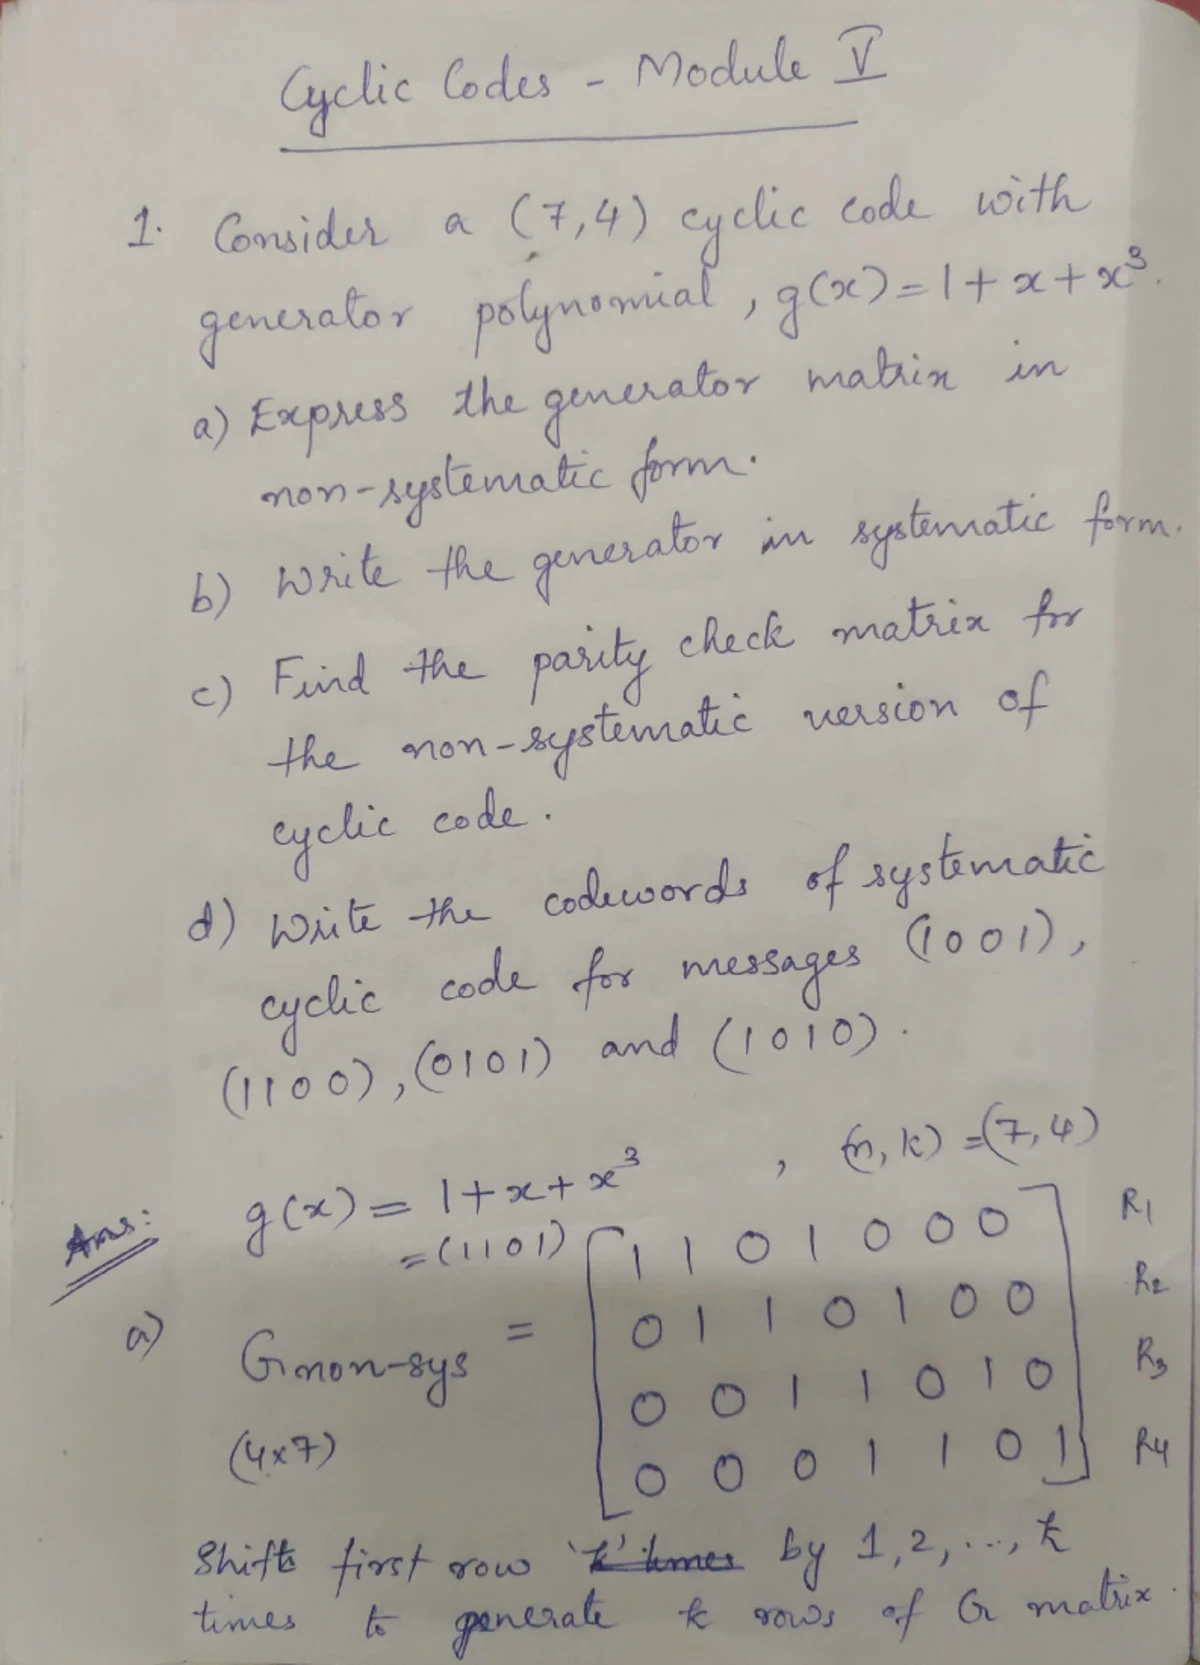 Cyclic Codes - Module V
1. Consider a (7,4) cyclic code with
generator polynomial, g(x)=1+x+x³.
a) Express the generator matrix in
non-systematic form.
b) Write the generator in systematic form.
c) Find the parity check matrix for
the non-systematic version of
cyclic code.
d) Write the codewords of systematic
cyclic code for messages (1001),
(1100), (0101) and (1010).
Ans: g(x) = 1+x+x³, (n,k) = (7,4)
=(1101)
1 1 0 1 0 0 0 R1
0 1 1 0 1 0 0 R2
a) G non-sys =
0 0 1 1 0 1 0 R3
(4x7)
0 0 0 1 1 0 1 R4
Shift first row 'k' times by 1,2,..., k
times to generate k rows of G matrix.